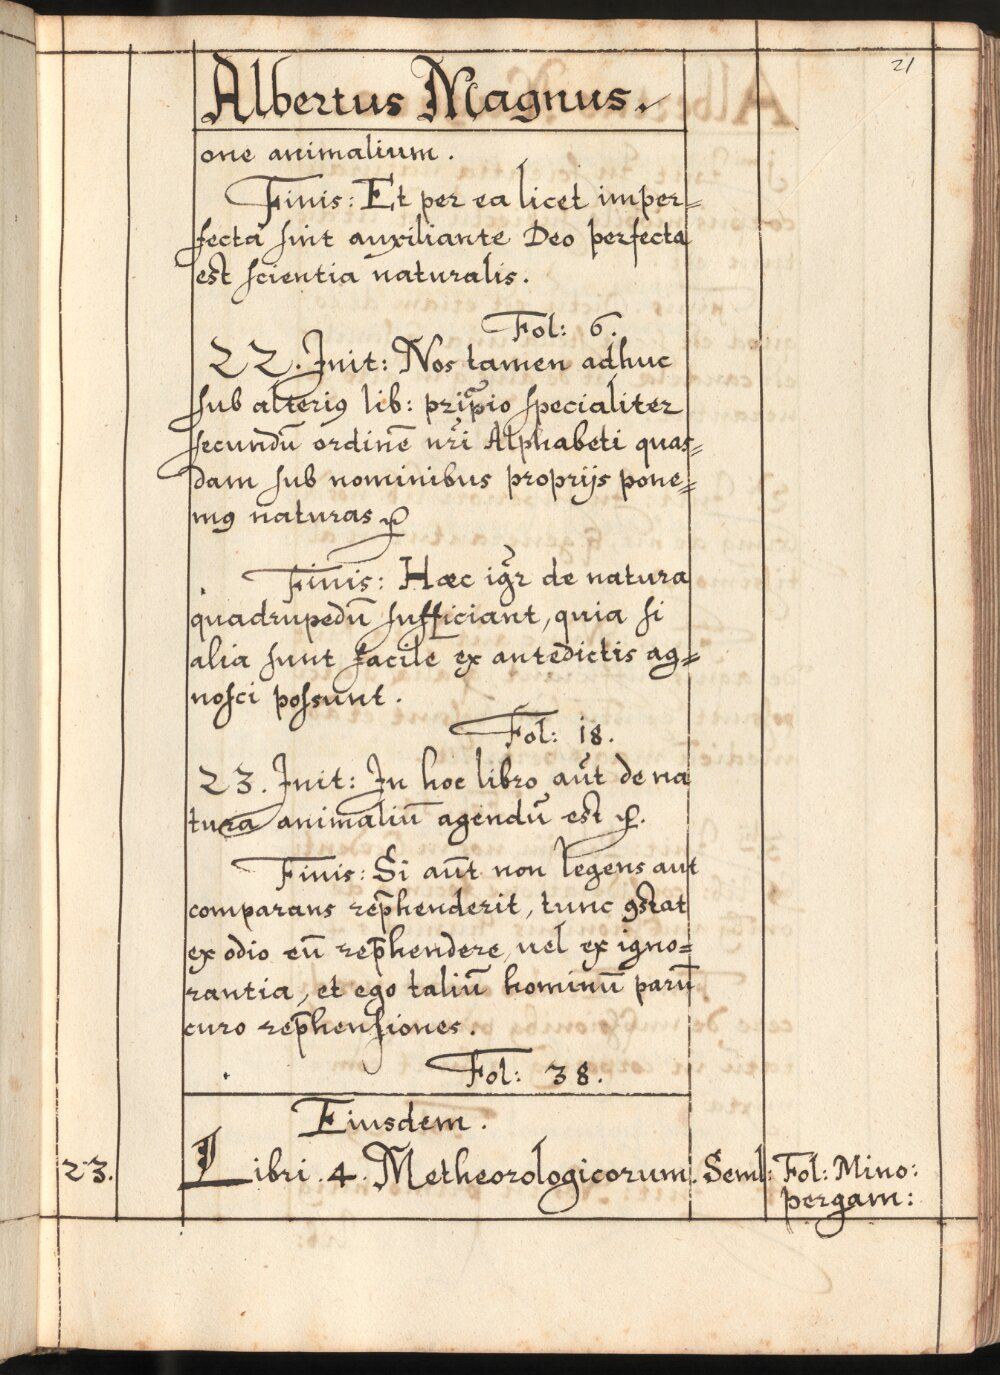 21
Albertus Magnus.
one animalium.
Finis: Et per ea licet imper=
fecta sint auxiliante Deo perfecta
est scientia naturalis.
Fol: 6.
22. Init: Nos tamen adhuc
sub alteriꝰ lib: prĩpio specialiter
secundũ ordinẽ nr̃i Alphabeti quas=
dam sub nominibus proprijs pone=
mꝰ naturas
Finis: Hæc igr̃ de natura
quadrupedũ sufficiant, quia si
alia sunt facile ex antedictis ag=
nosci possunt.
Fol: 18.
23. Init: In hoc libro aũt de na
tura animaliũ agendũ est
Finis: Si aũt non legens aut
comparans rep̃henderit, tunc ꝯstat
ex odio eũ rep̃hendere, uel ex igno=
rantia, et ego taliũ hominũ parũ
curo rep̃hensiones.
Fol: 38.
Eiusdem.
23. Libri .4. Metheorologicorum. Seml: Fol: Mino:
pergam: